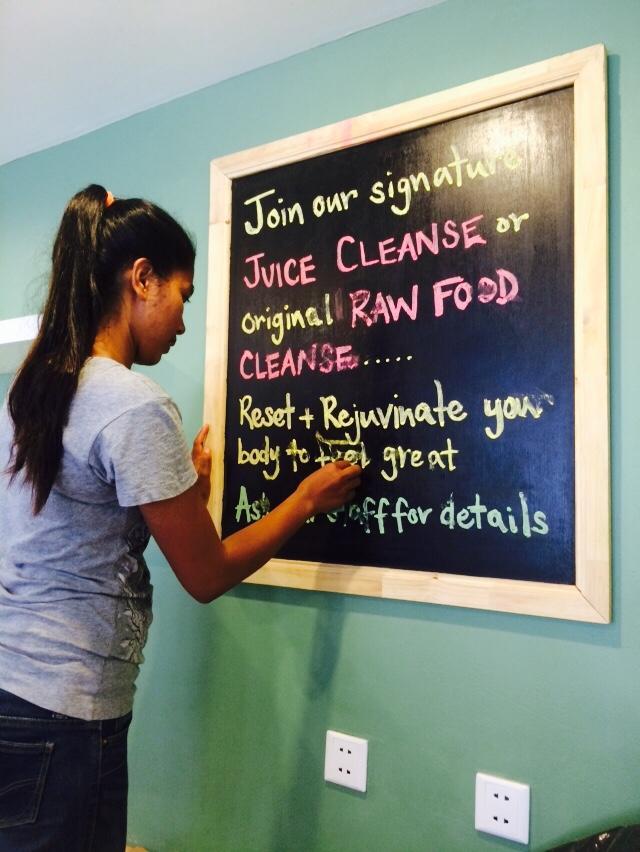 Join our signature
JUICE CLEANSE or
original RAW FOOD
CLEANSE.....
Reset + Rejuvinate your
body to feel great
Ask staff for details